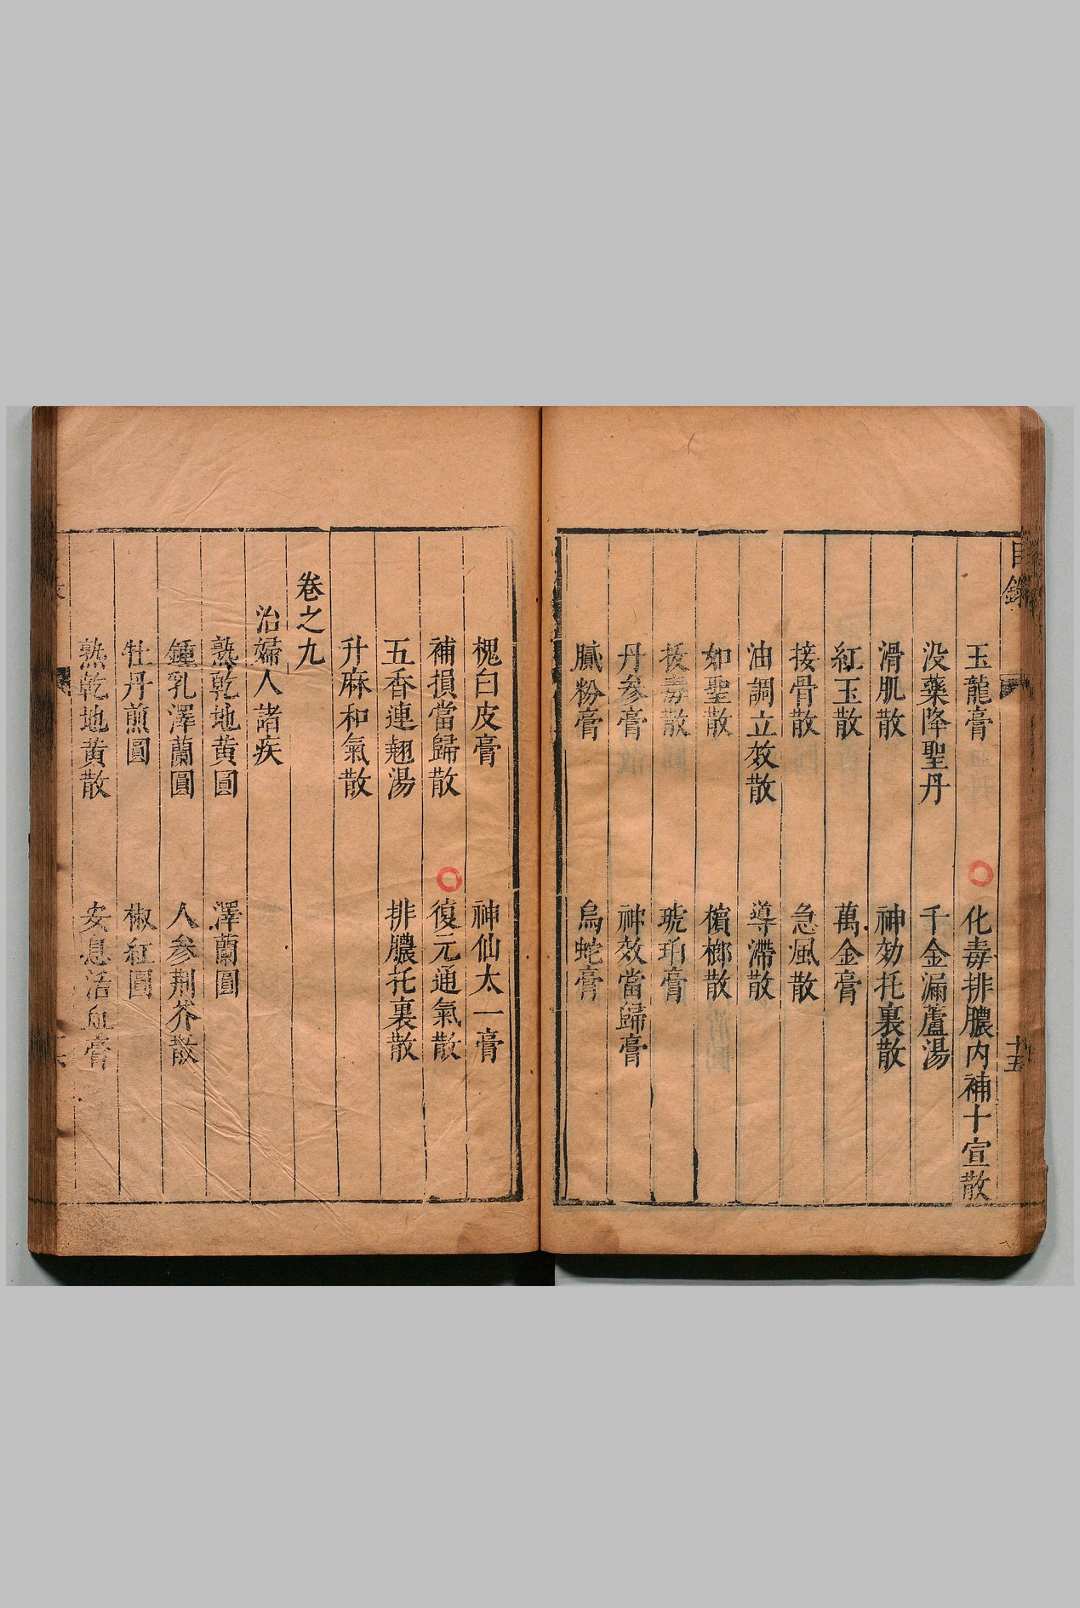 目錄
十五
玉龍膏 化毒排膿內補十宣散
没藥降聖丹 千金漏蘆湯
滑肌散 神効托裏散
紅玉散 萬金膏
接骨散 急風散
油調立效散 導滯散
如聖散 檳榔散
拔毒散 琥珀膏
丹參膏 神效當歸膏
膩粉膏 烏蛇膏
槐白皮膏 神仙太一膏
補損當歸散 復元通氣散
五香連翹湯 排膿托裏散
升麻和氣散
卷之九
治婦人諸疾
熟乾地黃圓 澤蘭圓
鍾乳澤蘭圓 人參荊芥散
牡丹煎圓 椒紅圓
熟乾地黃散 安息活血膏